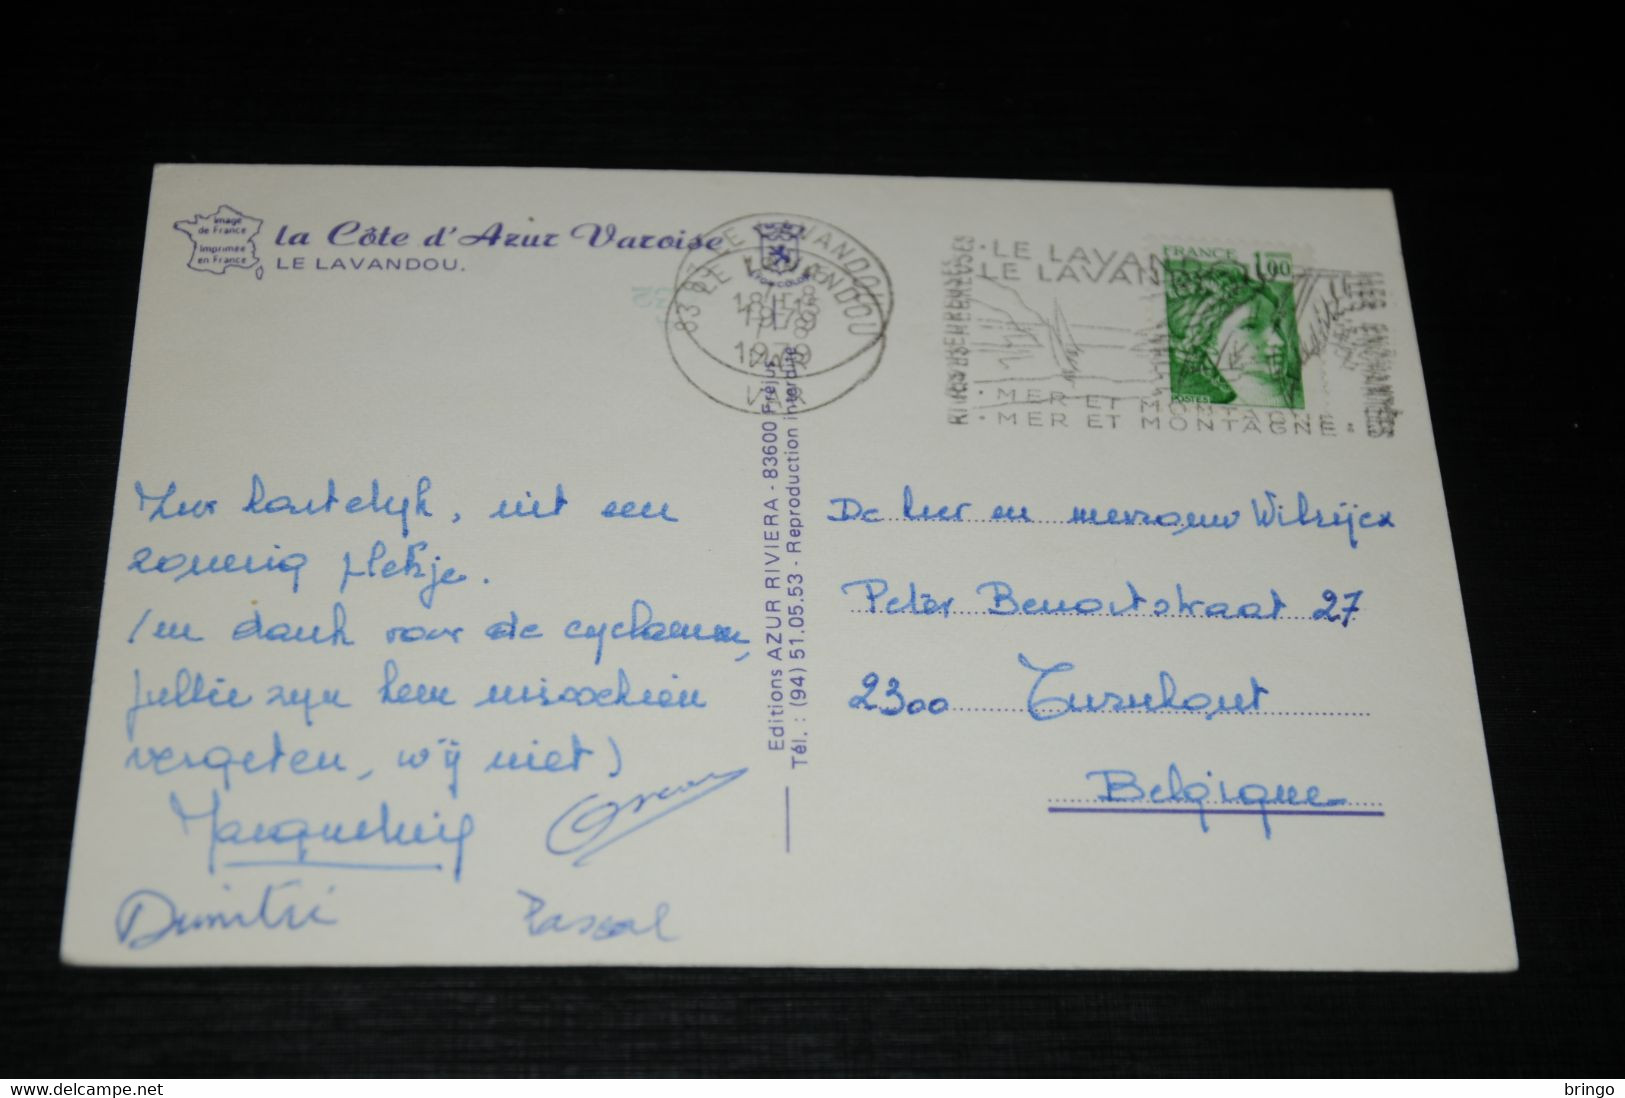 Image
de France
Imprimée
en France
la Côte d'Azur Varoise
LE LAVANDOU.
83 LE LAVANDOU
1979
1979
VAR
VAR
LE LAVAN
LE LAVAN
MER ET MONTAGNE
MER ET MONTAGNE
FRANCE 1,00
POSTES
Editions AZUR RIVIERA - 83600 Fréjus
Tél. : (94) 51.05.53 - Reproduction interdite
hartelijk, uit een
zonnig plekje.
en dank voor de cyclaam,
jullie zijn hem misschien
vergeten, wij niet)
Dimitri Pascal
De heer en mevrouw Wilrijcx
Peter Benoitstraat 27
2300 Turnhout
Belgique
bringo